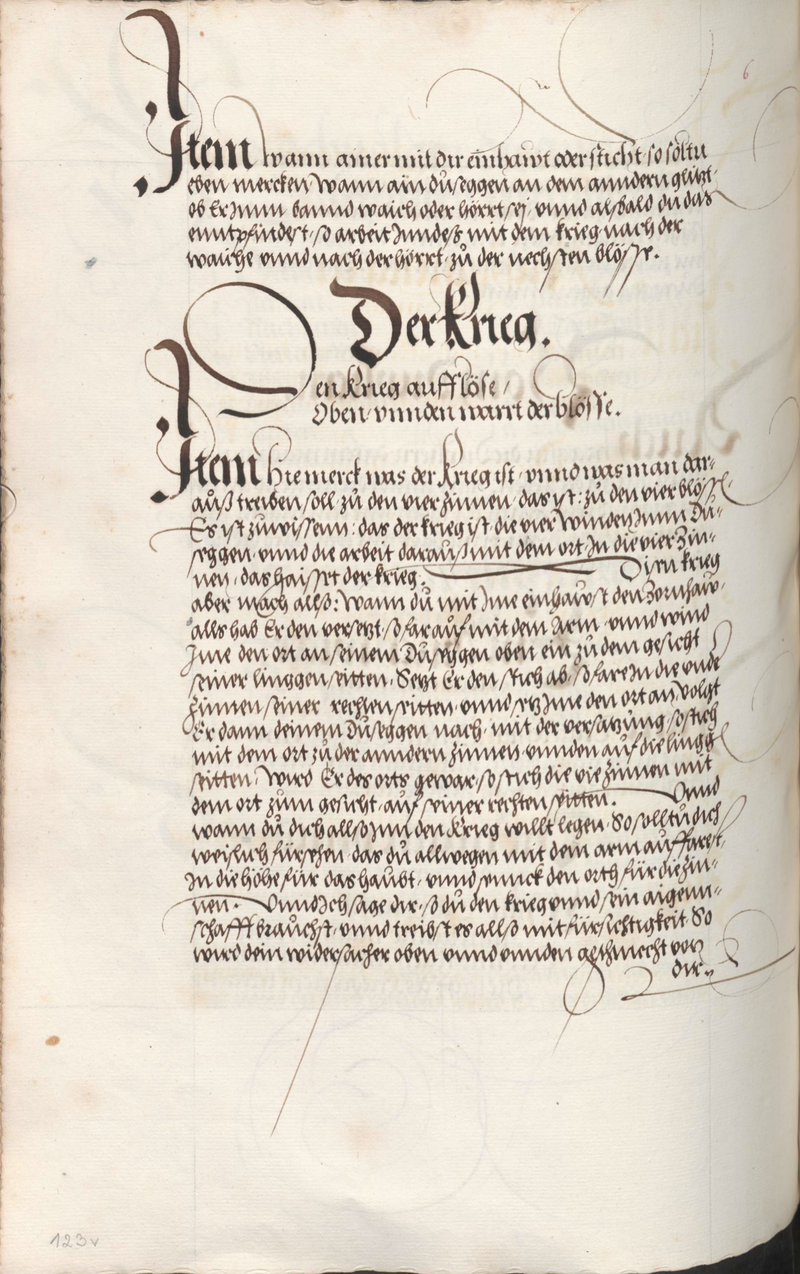 6
Item wann ainer mit dir einhawt oder sticht so solltu
eben mercken Wann ain duseggen an dem anndern glitzt
ob Er Jnnn bannd waich oder hörrt sej, vnnd alsbald du das
enntpfindest, so arbeit Jnndeß mit dem krieg nach der
waiche vnnd nach der hörrt, zu der nechsten blösse.
Der Krieg.
en Krieg aufflöse,
Oben, vnnden warrt der blösse.
Item hie merck was der Krieg ist, vnnd was man dar¬
auß treiben soll, zu den vier Zinnen, das ist: zu den vier blöss
Es ist zuwissenn: das der krieg ist die vier Winden Jnnn Du¬
seggen, vnnd die arbeit darauß mit dem ort, Jn die vier Zin¬
nen, das haisset der krieg. Disen krieg
aber mach allso: Wann du mit Jme einhawst den Zornhaw,
alls bald Er den versetzt, so far auf mit dem Arm, vnnd wind
Jme den ort an seinem Duseggen oben ein zu dem gesicht
seiner linggen seitten, Setzt Er den stich ab, so fare Jn die
Zinnen seiner rechten seitten, vnnd setz Jme den ort an, Volgt
Er dann deinem Duseggen nach, mit der versatzung, so stich
mit dem ort zu der anndern Zinnen, vnnden auf die lingg
seitten, Wird Er des orts gewar, so stich die vie Zinnen mit
dem ort zum gesicht, auf seiner rechten seitten. Vnnd
wann du dich allso Jnn den Krieg willt legen, So solltu dich
weislich fürsehen, das du allwegen mit dem arm auffarest,
Jn die höhe für das haubt, vnnd den orth für die Zin¬
nen. Vnnd Jch sage dir, so du den krieg vnnd sein aigenn¬
schafft brauchst, vnnd treibst es allso mit fürsichtigkeit So
wird dein widersacher oben vnnd vnnden geschwecht von
dir.
123v